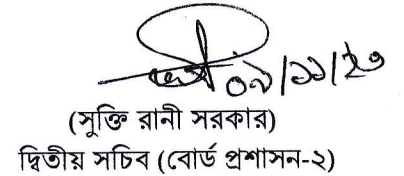 ০৯/১১/২৩
(সুক্তি রানী সরকার)
দ্বিতীয় সচিব (বোর্ড প্রশাসন-২)